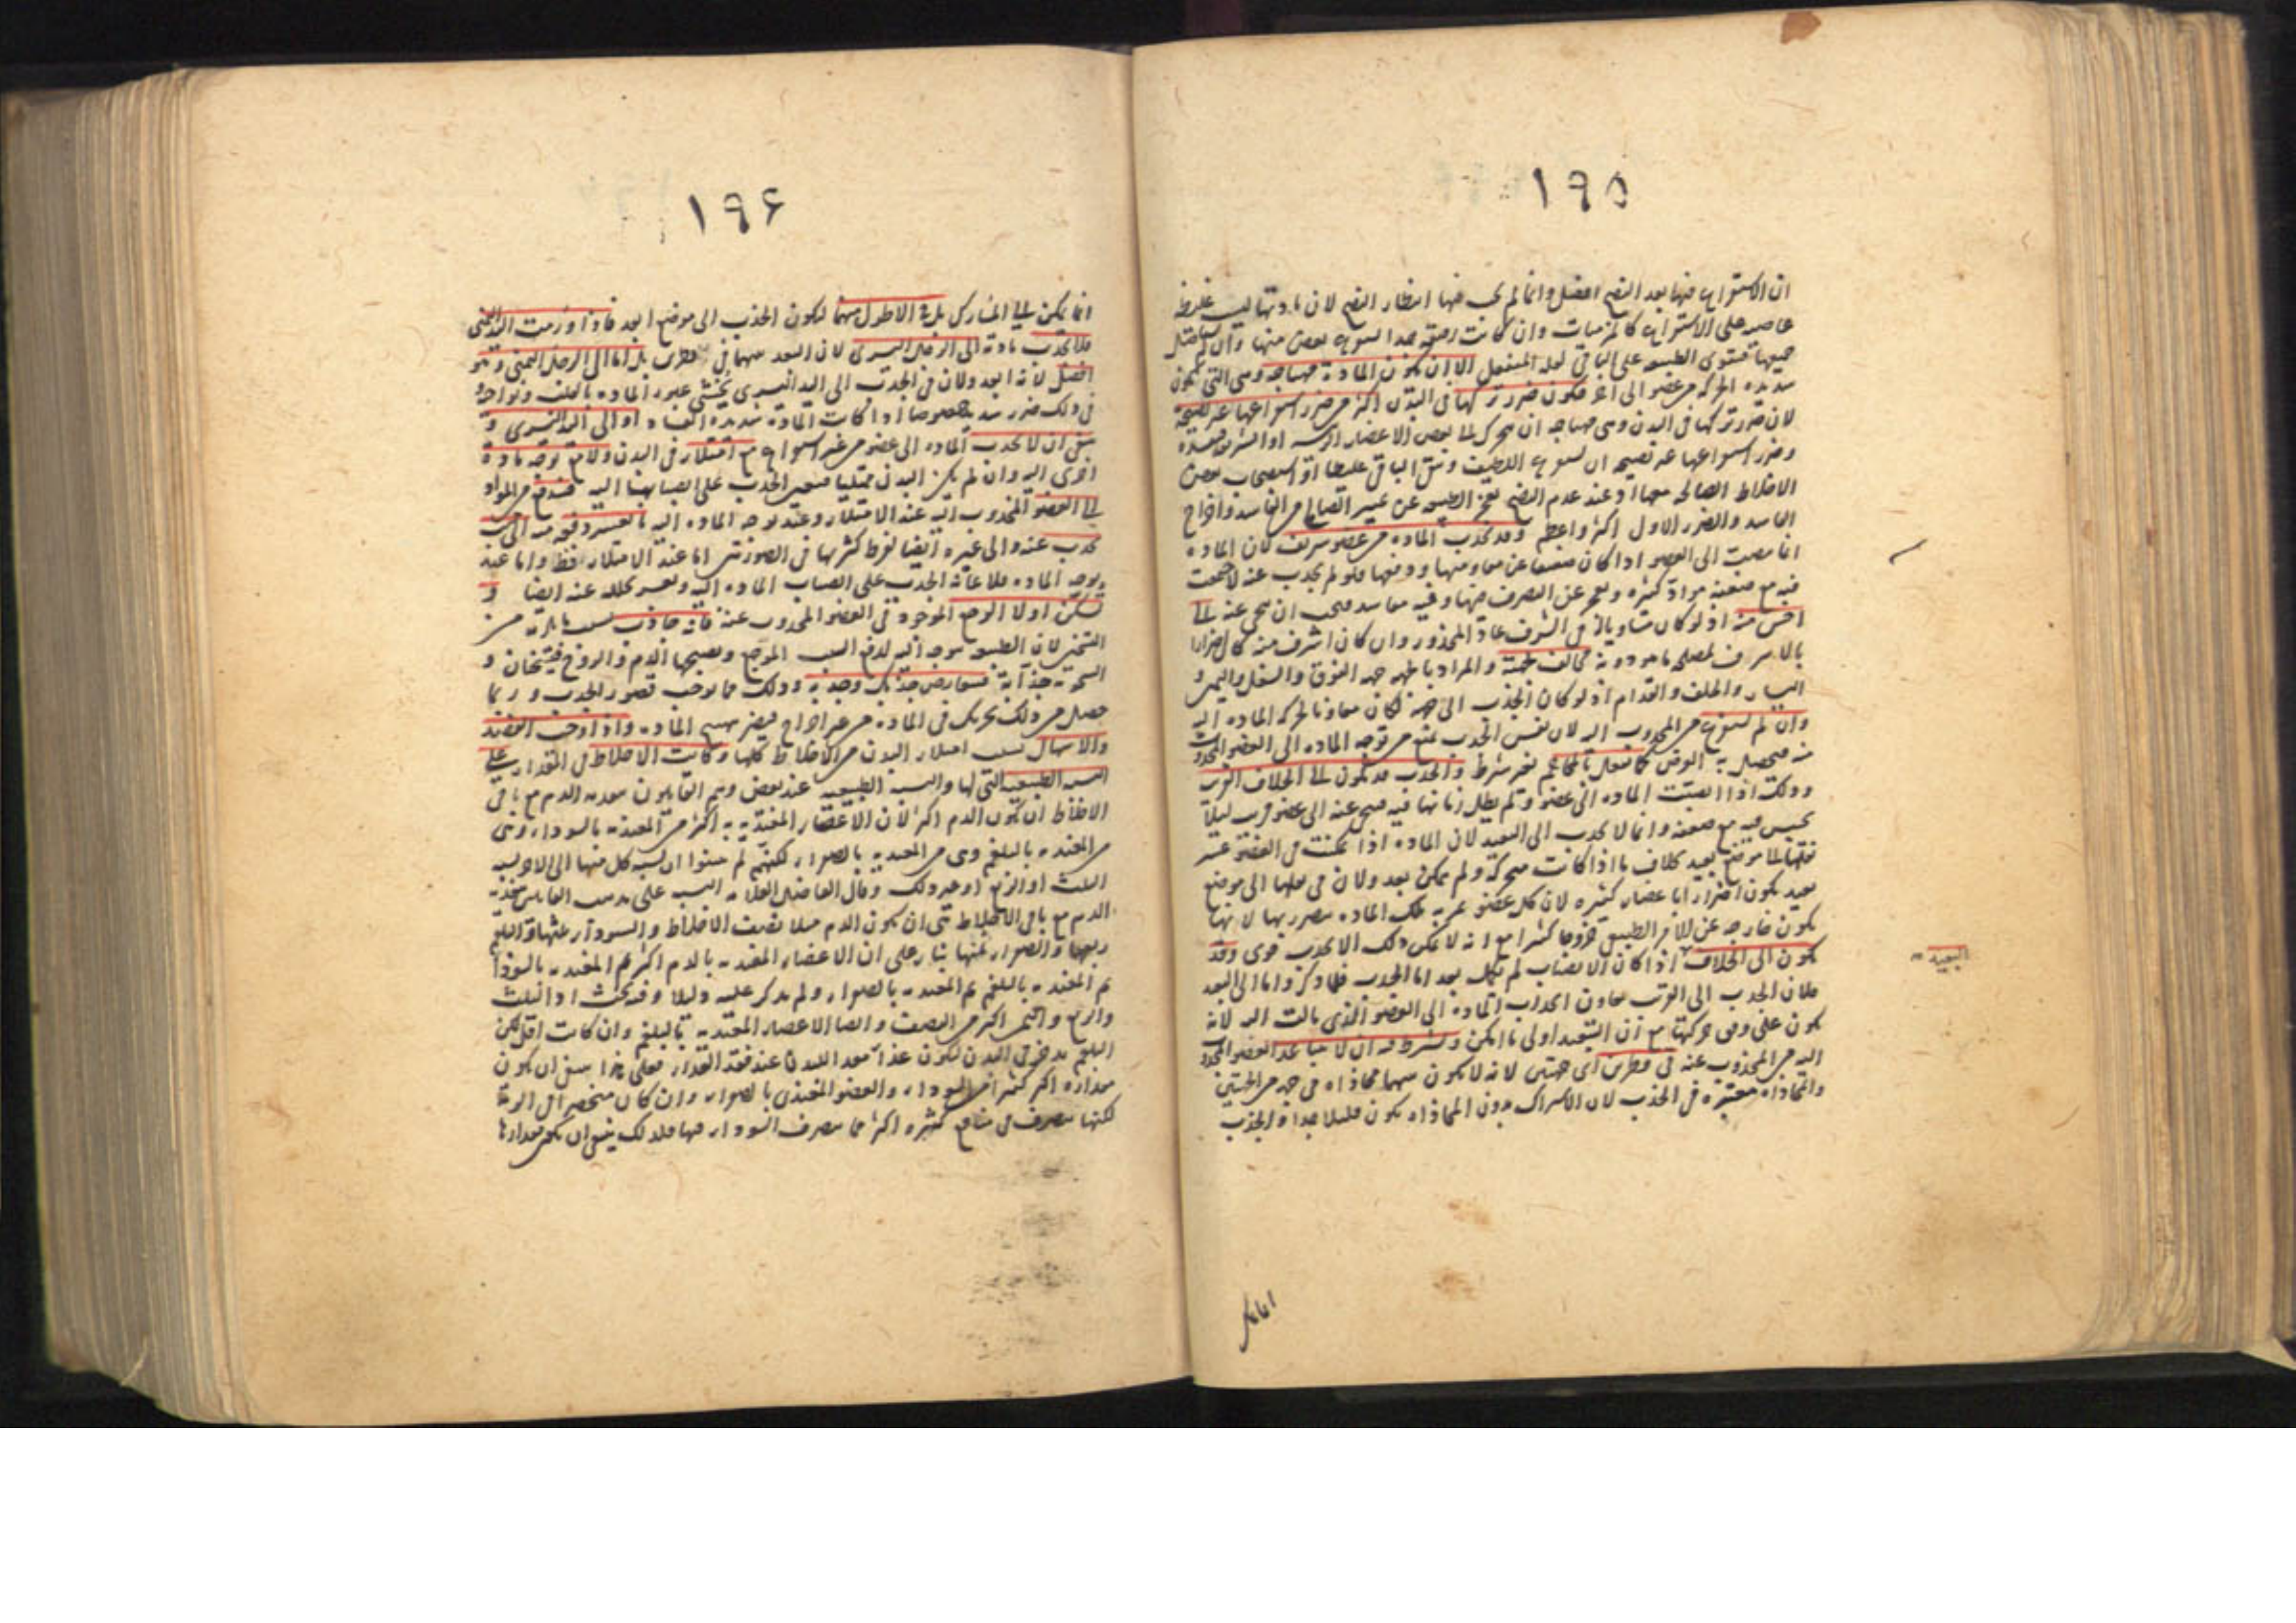 ١٩٥
ان الاستفراغ فيها بعد النضج افضل وانما لم يجب فيها انتظار النضج لان مادتها ليست غليظة
عاصية على الاستفراغ كالمزمنات وان كانت رقيقة
جميعها فتقوى الطبيعة على الباقي الا ان تكون المادة مهياجة وهي التي تكون
شديدة الحركة من عضو الى اخر فيكون ضرر تركها في البدن اكثر من ضرر استفراغها غير نضيجة
لان ضرر تركها في البدن وهي مهياجة ان تتحرك الى بعض الاعضاء الرئيسة او الشريفة
وضرر استفراغها غير نضيجة ان يستفرغ اللطيف ويبقى الباقي غليظا او
الاخلاط الصالحة معها اذ عند عدم النضج تعجز الطبيعة عن تمييز الصالح من الفاسد واخراج
الفاسد والضرر الاول اكثر واعظم وقد تجذب المادة من عضو شريف لان المادة
انما تنصب الى العضو اذا كان ضعيفا عن مقاومتها ودفعها فلو لم تجذب عنه لاجتمعت
فيه مع ضعفه مواد كثيرة ويعجز عن التصرف فيها و
اخس منه اذ لو كان مساويا له في الشرف عاد المحذور وان كان اشرف منه كان اضرارا
بالاشرف مخالف جهته والمراد بالجهة جهة الفوق والسفل واليمين و
اليسار والخلف والقدام اذ لو كان الجذب الى جهته لكان معاونا لحركة المادة اليه
وان لم يستفرغ من المجذوب اليه لان نفس الجذب يمنع من توجه المادة الى العضو المجذوب
منه فيحصل به الغرض كما يفعل بالمحاجم بغير شرط والجذب قد يكون الى الخلاف القريب
وذلك اذا انصبت المادة الى عضو ولم يطل زمانها فيه فينحى عنه الى عضو قريب ليلا
تحتبس فيه مع ضعفه وانما لا تجذب الى البعيد لان المادة اذا تمكنت في العضو عسر
نقلها الى موضع بعيد بخلاف ما اذا كانت متحركة ولم تتمكن بعد ولان في نقلها الى موضع
بعيد يكون اضرارا باعضاء كثيرة لان كل عضو تمر به تلك المادة يتضرر بها لانها
تكون خارجة عن الامر الطبيعي خروجا كثيرا مع انه لا يمكن ذلك الا بجذب قوي وقد
يكون الى الخلاف اذا كان الانصباب لم يكمل بعد اما الجذب فلما ذكر واما الى البعيد
البعيد
فلان الجذب الى القريب يعاون انجذاب المادة الى العضو الذي مالت اليه لانه
يكون على وفق حركتها مع ان التبعيد اولى ما امكن ويشترط فيه ان لا يتباعد العضو المجذوب
اليه من المجذوب عنه في قطرين اي جهتين لانه لا يكون بينهما محاذاة في جهة من الجهتين
والمحاذاة معتبرة في الجذب لان الاشتراك بدون المحاذاة يكون قليلا جدا والجذب
انما
١٩۶
انما يمكن الى المشارك بل في الاطول منهما ليكون الجذب الى موضع ابعد فاذا ورمت اليد اليمنى
فلا تجذب مادته الى الرجل اليسرى لان البعد بينهما في قطرين بل اما الى الرجل اليمنى وهو
افضل لانه ابعد ولان في الجذب الى اليد اليسرى يخشى عبور المادة بالقلب ونواحيه و
في ذلك ضرر شديد خصوصا اذا كانت المادة شديدة الفساد او الى اليد اليسرى و
ينبغي ان لا تجذب المادة الى عضو من غير استفراغ مع امتلاء في البدن ولا مع توجه مادة
اخرى اليه وان لم يكن البدن ممتليا فيعين الجذب على انصبابها اليه فيندفع من المواد
الى العضو المجذوب اليه عند الامتلاء وعند توجه المادة اليه ما يعسر دفعه
تجذب عنه والى غيره ايضا لفرط كثرتها في الصورتين اما عند الامتلاء فظ واما عند
توجه المادة فلاعانة الجذب على انصباب المادة اليه ويعسر تحلله عنه ايضا و
تسكن اولا الوجع الموجود في العضو المجذوب عنه فانه جاذب بسبب ما يلزمه من
التسخن لان الطبيعة تتوجه اليه لدفع السبب الموجع ويصحبها الدم والروح فيسخنان و
السخونة جذابة فيتعارض جذبك وجذبه وذلك مما يوجب قصور الجذب وربما
حصل من ذلك تحريك في المادة من غير اخراج فيضر بهيج المادة واذا وجب الفصد
والاسهال بسبب امتلاء البدن من الاخلاط كلها وكانت الاخلاط في المقدار على
النسبة الطبيعية التي لها والنسبة الطبيعية عند بعض وهم القايلون بتغذية الدم مع باقي
الاخلاط ان يكون الدم اكثر لان الاعضاء المغتذية به اكثر من المغتذية بالسوداء وهي
من المغتذية بالبلغم وهي من المغتذية بالصفراء لكنهم لم يبينوا ان نسبة كل منها الى الاخر نسبة
الثلث او الربع او غير ذلك وقال الفاضل العلامة النسب على مذهب القايلين بتغذية
الدم مع باقي الاخلاط هي ان يكون الدم مثلا نصف الاخلاط والسوداء ثلثها والبلغم
ربعها والصفراء ثمنها بناء على ان الاعضاء المغتذية بالدم اكثر ثم المغتذية بالسوداء
ثم المغتذية بالبلغم ثم المغتذية بالصفراء ولم يذكر عليه دليلا وفيه بحث اذ الثلث
والربع والثمن اكثر من النصف وايضا الاعضاء المغتذية بالبلغم وان كانت اقل لكن
البلغم مدخر في البدن ليكون غذاء معدا للبدن عند فقد الغذاء فعلى هذا ينبغي ان يكون
مقداره اكثر كثيرا من السوداء والعضو المغتذي بالصفراء وان كان منحصرا في الرية
لكنها تنصرف في منافع كثيرة اكثر مما تنصرف السوداء فيها فلذلك ينبغي ان يكون مقدارها